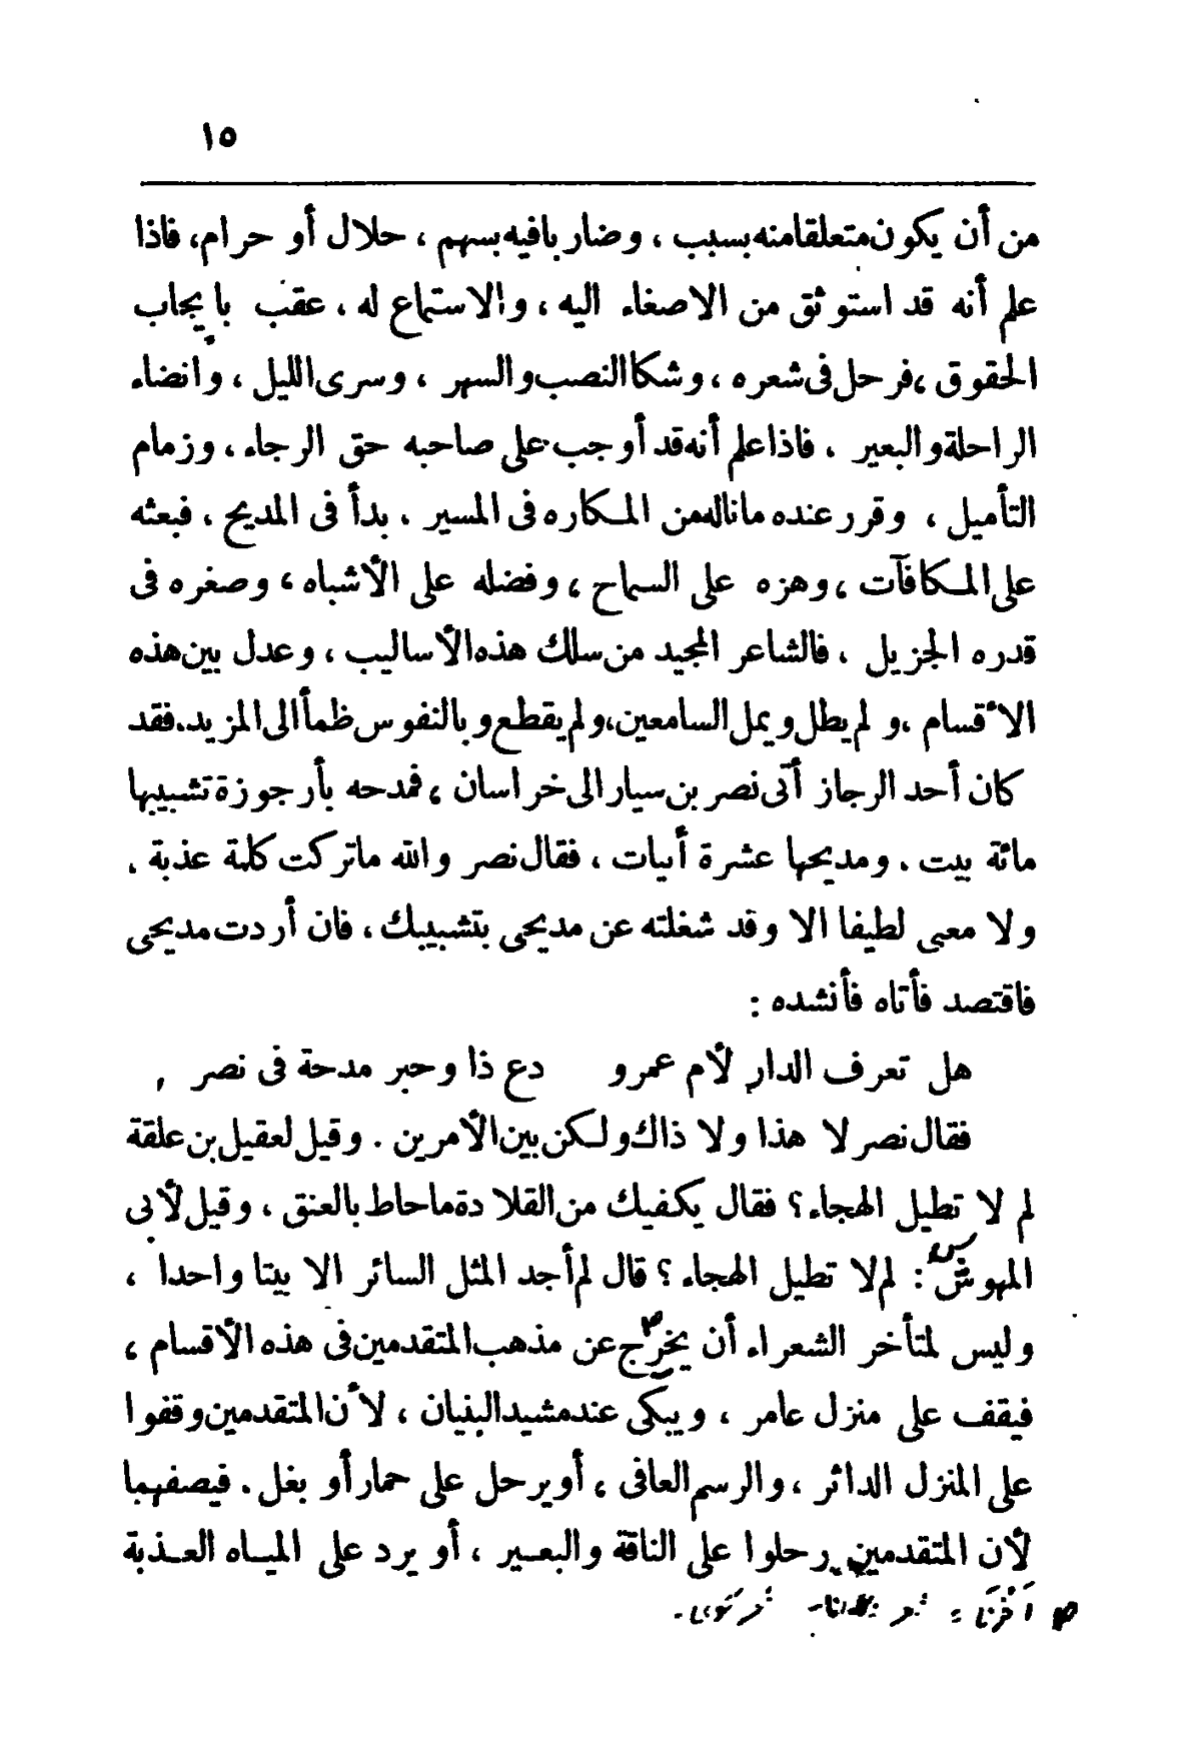 ١٥
من أن يكون متعلقا منه بسبب ، وضاربا فيه بسهم ، حلال أو حرام، فاذا
علم أنه قد استوثق من الاصغاء اليه ، والاستماع له ، عقب بايجاب
الحقوق ، فرحل فى شعره ، وشكا النصب والسهر ، وسرى الليل ، وانضاء
الراحلة والبعير ، فاذا علم أنه قد أوجب على صاحبه حق الرجاء ، وزمام
التأميل ، وقرر عنده ما ناله من المكاره فى المسير ، بدأ فى المديح ، فبعثه
على المكافآت ، وهزه على السماح ، وفضله على الأشباه ، وصغره فى
قدره الجزيل ، فالشاعر المجيد من سلك هذه الأساليب ، وعدل بين هذه
الاقسام ، و لم يطل ويمل السامعين، ولم يقطع وبالنفوس ظمأ الى المزيد. فقد
كان أحد الرجاز أتى نصر بن سيار الى خراسان ، فمدحه بأرجوزة تشبيبها
مائة بيت . ومديحها عشرة أبيات ، فقال نصر والله ما تركت كلمة عذبة .
ولا معنى لطيفا الا وقد شغلته عن مديحى بتشبيبك ، فان أردت مديحى
فاقتصد فأتاه فأنشده :
هل تعرف الدار لأم عمرو دع ذا وحبر مدحة فى نصر ,
فقال نصر لا هذا ولا ذاك ولكن بين الأمرين . وقيل لعقيل بن علقة
لم لا تطيل الهجاء ؟ فقال يكفيك من القلادة ما حاط بالعنق ، وقيل لأبى
المهوش : لم لا تطيل الهجاء ؟ قال لم أجد المثل السائر الا بيتا واحدا ،
وليس لمتأخر الشعراء أن يخرج عن مذهب المتقدمين فى هذه الأقسام ،
فيقف على منزل عامر ، ويبكى عند مشيد البنيان ، لأن المتقدمين وقفوا
على المنزل الداثر ، والرسم العافى ، أو يرحل على حمار أو بغل . فيصفهما
لأن المتقدمين رحلوا على الناقة والبعير ، أو يرد على المياه العذبة